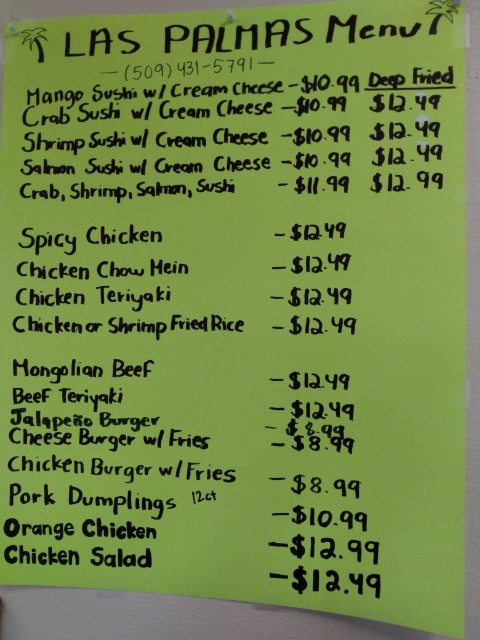 LAS PALMAS Menu
—(509) 431-5791—
Deep Fried
Mango Sushi w/ Cream Cheese -$10.99
Crab Sushi w/ Cream Cheese -$10.99 $12.49
Shrimp Sushi w/ Cream Cheese -$10.99 $12.49
Salmon Sushi w/ Cream Cheese -$10.99 $12.49
Crab, Shrimp, Salmon, Sushi -$11.99 $12.99
Spicy Chicken -$12.49
Chicken Chow Mein -$12.49
Chicken Teriyaki -$12.49
Chicken or Shrimp Fried Rice -$12.49
Mongolian Beef -$12.49
Beef Teriyaki -$12.49
Jalapeño Burger -$8.99
Cheese Burger w/ Fries -$8.99
Chicken Burger w/ Fries -$8.99
Pork Dumplings 12ct -$10.99
Orange Chicken -$12.99
Chicken Salad -$12.49